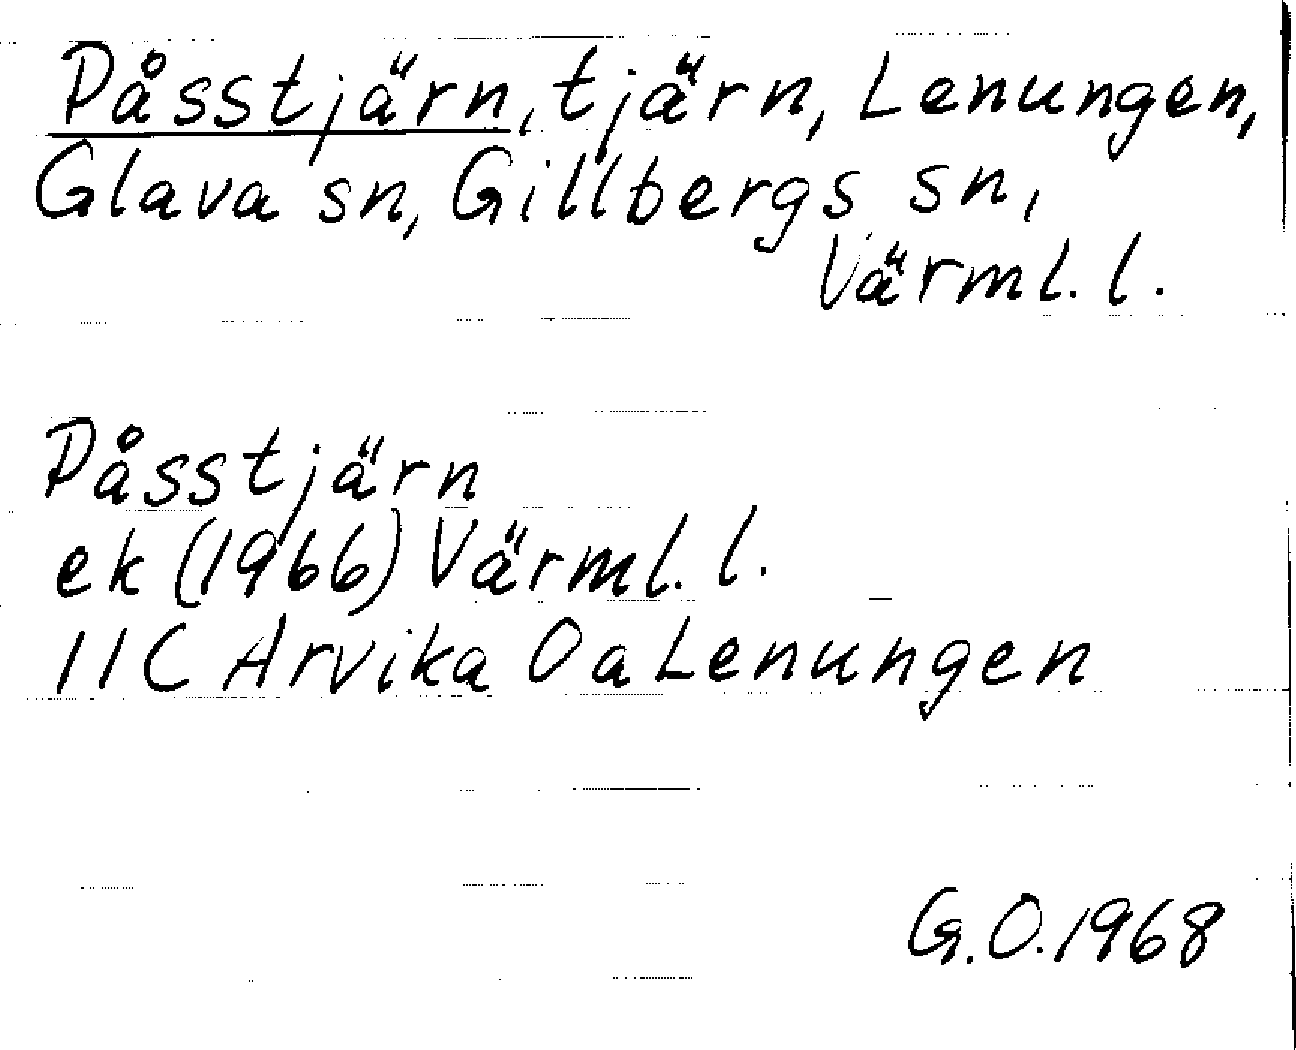 Påsstjärn, tjärn, Lenungen,
Glava sn, Gillbergs sn,
Värml. l.
Påsstjärn
ek (1966) Värml. l.
11C Arvika 0a Lenungen
G.O. 1968